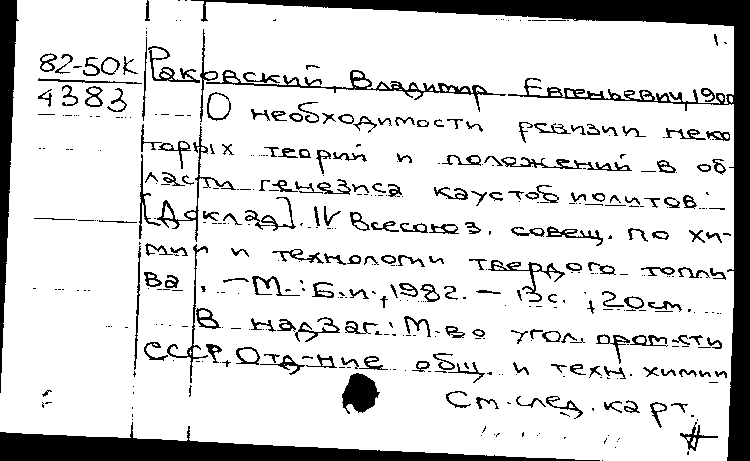 1.
82-50К Раковский, Владимир Евгеньевич, 1900
4383
О необходимости ревизии неко
торых теорий и положений в об-
ласти генезиса каустобиолитов :
[Доклад]. IV Всесоюз. совещ. по хи-
мии и технологии твердого топли-
ва. – М. : Б.и., 1982. – 13с. ; 20см.
В надзаг.: М-во угол. пром-сти
СССР, Отд-ние общ. и техн. химии
См. след. карт.